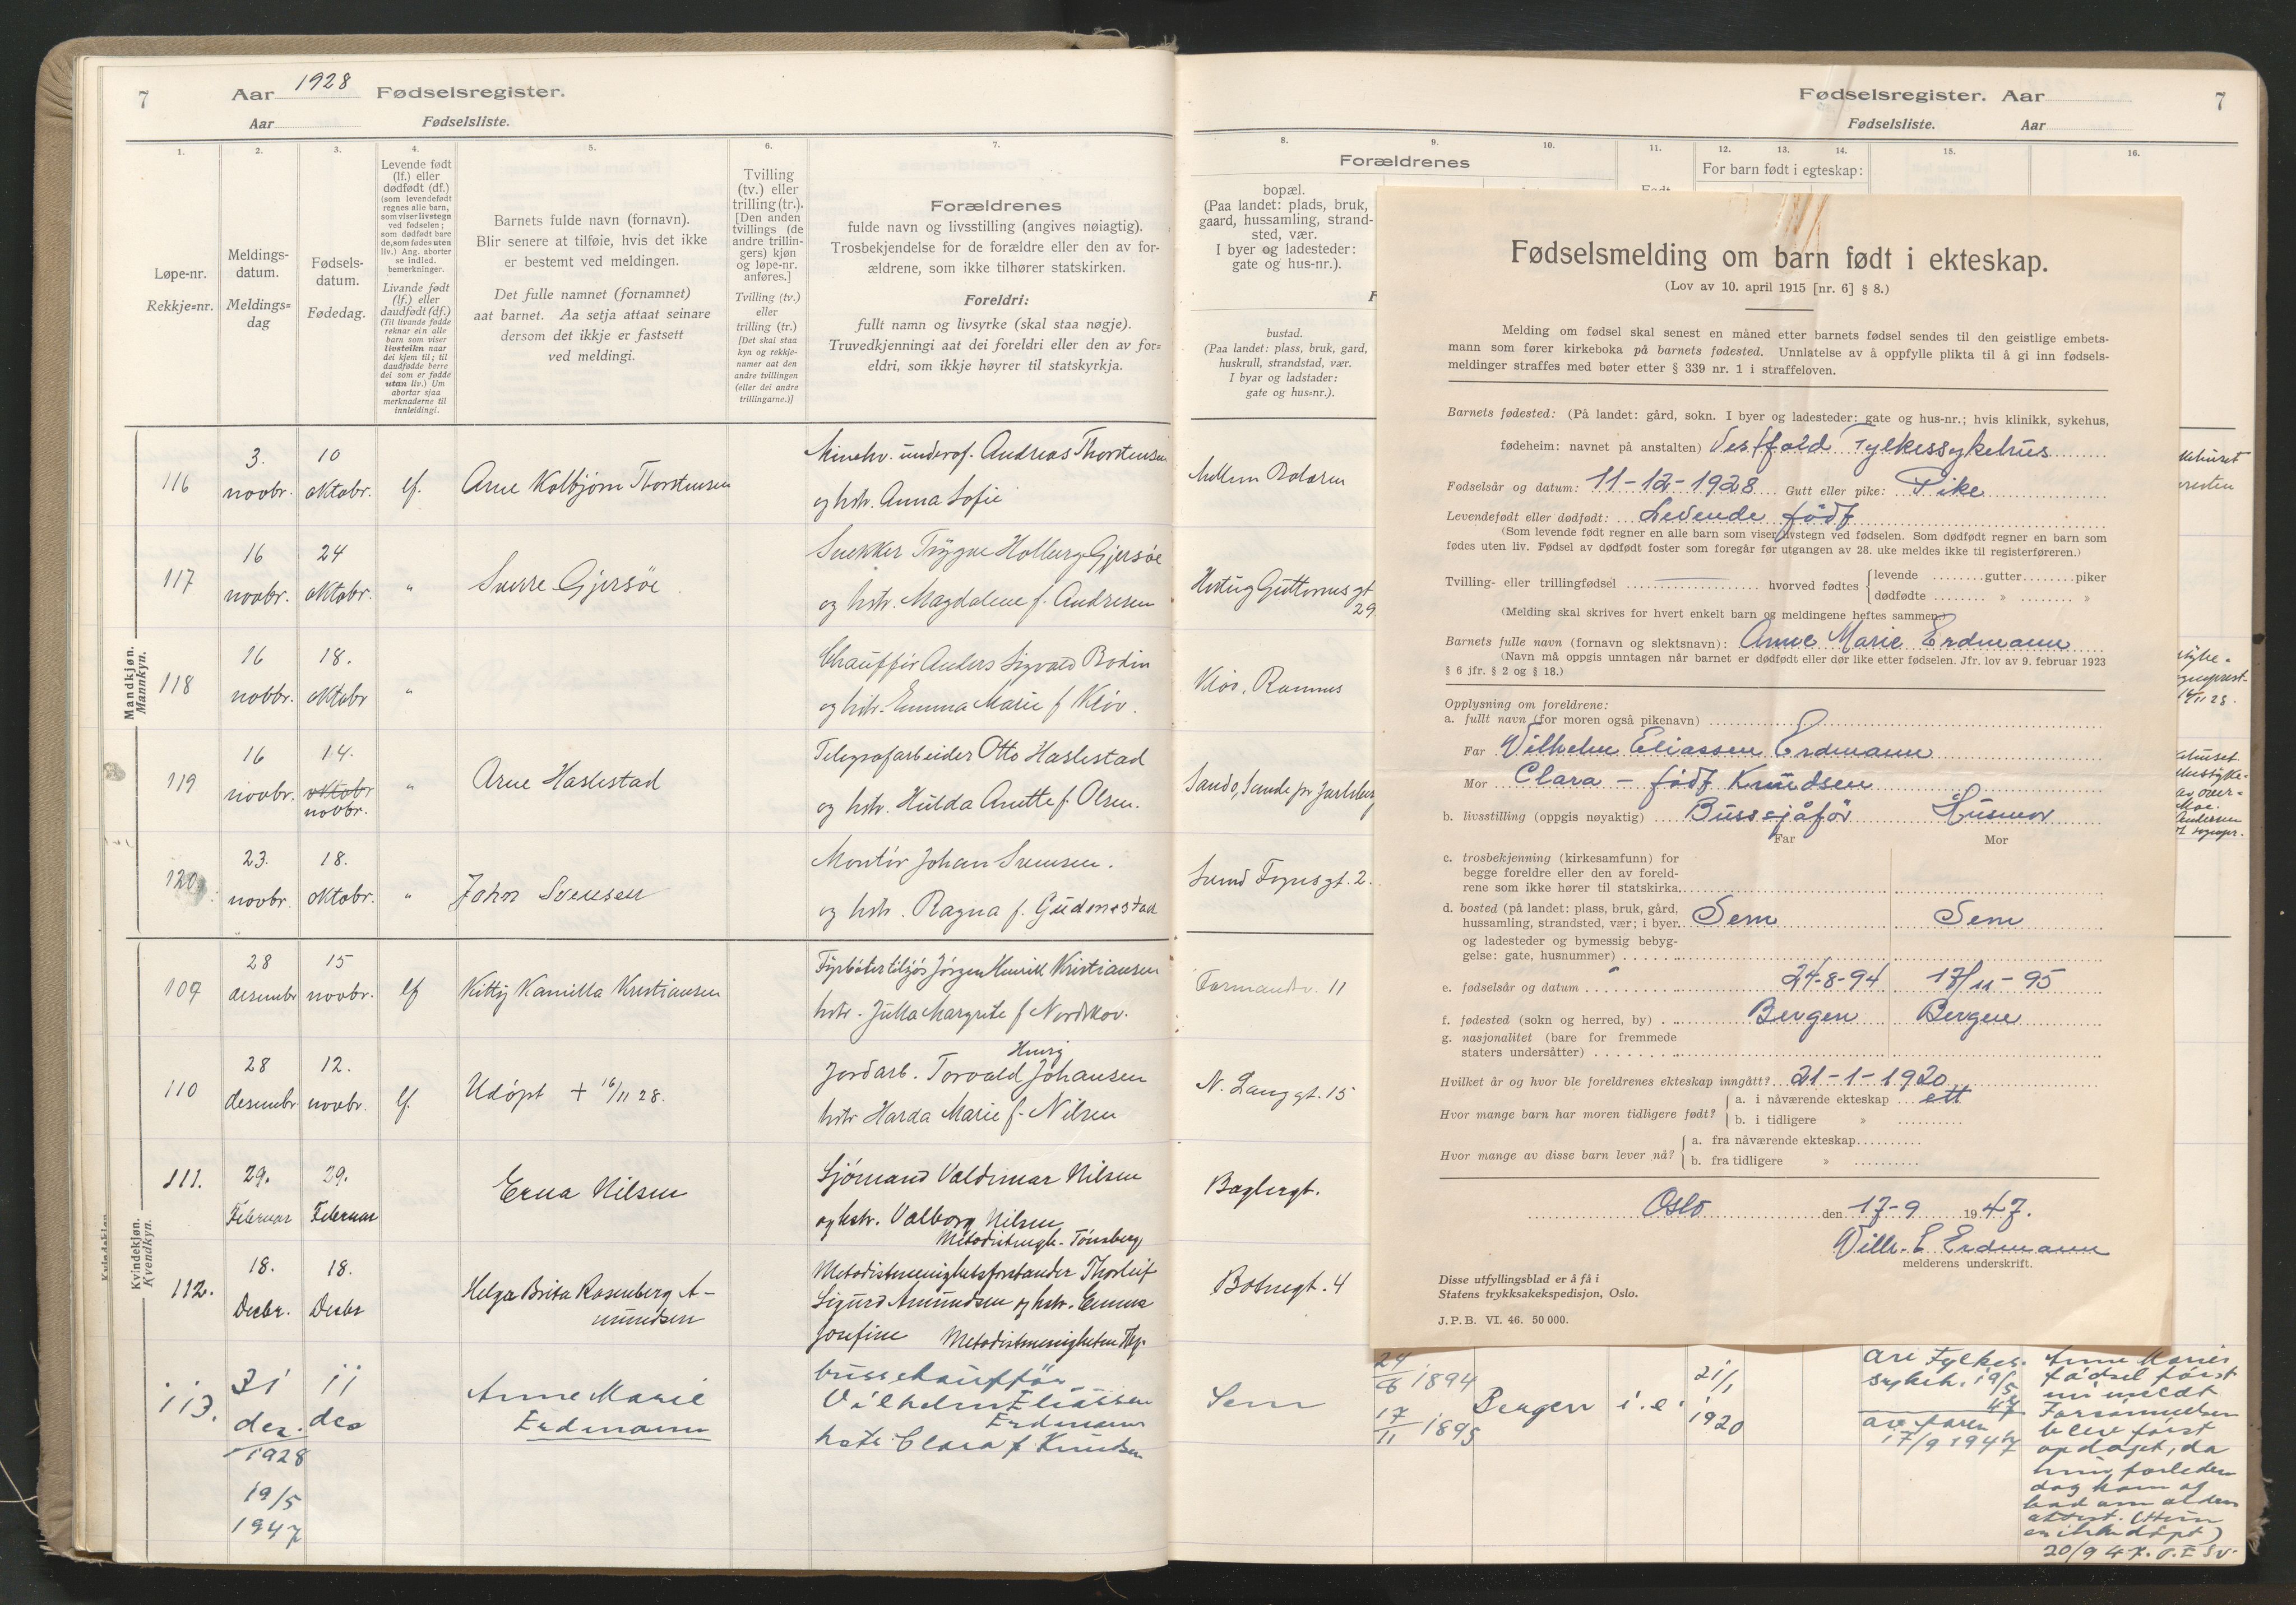 7
Aar 1928 Fødselsregister.
Aar Fødselsliste.
1.
2.
3.
4.
5.
6.
7.
Løpe-nr.
Rekkje=nr.
Meldings-
datum.
Meldings=
dag
Fødsels-
datum.
Fødedag.
Levende født
(lf.) eller
dødfødt (df.)
(som levendefødt
regnes alle barn,
som viser livstegn
ved fødselen;
som dødfødt bare
de, som fødes uten
liv.) Ang. aborter
se indled.
bemerkninger.
Livande født
(lf.) eller
daudfødt (df.)
(Til livande fødde
reknar ein alle
barn som viser
livsteikn naar
dei kjem til; til
daudfødde berre
dei som er fødde
utan liv.) Um
abortar sjaa
merknaderne til
innleidingi.
Barnets fulde navn (fornavn).
Blir senere at tilføie, hvis det ikke
er bestemt ved meldingen.
Det fulle namnet (fornamnet)
aat barnet. Aa setja attaat seinare
dersom det ikkje er fastsett
ved meldingi.
Tvilling
(tv.) eller
trilling (tr.).
[Den anden
tvillings (de
andre trillin-
gers) kjøn
og løpe-nr.
anføres.]
Tvilling (tv.)
eller
trilling (tr.)
[Det skal staa
kyn og rekkje-
numer aat den
andre tvillingen
(eller dei andre
trillingarne.)]
Forældrenes
fulde navn og livsstilling (angives nøiagtig).
Trosbekjendelse for de forældre eller den av for-
ældrene, som ikke tilhører statskirken.
Foreldri:
fullt namn og livsyrke (skal staa nøgje).
Truvedkjenningi aat dei foreldri eller den av for=
eldri, som ikkje høyrer til statskyrkja.
Mandkjøn.
Mannkyn.
116
3.
novbr.
10
oktobr.
lf.
Arne Kolbjørn Thorstensen
Minehv. underof. Andreas Thorstensen
og hstr. Anna Sofie
117
16
novbr.
24
oktobr.
"
Sverre Gjersøe
Snekker Trygve Holberg Gjersøe
og hstr. Magdalene f. Andresen
118
16
novbr.
18.
oktobr
"
Chauffør Anders Sigvald Bodin
og hstr. Emma Marie f Kløv.
119
16
novbr.
14.
oktobr
novbr.
"
Arne Haslestad
Telegrafarbeider Otto Haslestad
og hstr. Hulda Anette f. Olsen.
120.
23.
novbr.
18.
oktobr.
"
John Svensen
Montør Johan Svensen.
og hstr. Ragna f. Gudmestad
Kvindekjøn.
Kvendkyn.
109
28
desembr
15
novbr.
lf
Kitty Kamilla Kristiansen
Fyrbøter tilsjøs Jørgen Henrik Kristiansen
hstr. Julla Margrete f Nordskov.
110
28
desembr
12.
novbr.
lf.
Udøpt + 16/11 28.
Henry
Jordarb. Torvald Johansen
hstr Harda Marie f. Nilsen
111.
29.
Februar
29.
Februar
Erna Nilsen
Sjømand Valdemar Nilsen
og hstr. Valborg Nilsen
Metodistmgh. Tønsberg
112.
18.
Desbr.
18.
Desbr
Helga Brita Rosenberg A-
mundsen
Metodistmenighetsforstander Thorleif
Sigurd Amundsen og hstr. Emma
Josefine Metodistmenigheten Tbg.
113.
31
des.
1928
19/5
1947
11
des
Anne Marie
Erdmann
busschauffør
Vilhelm Eliassen
Erdmann
hstr Clara f Knudsen
Fødselsregister. Aar
7
Fødselsliste. Aar
8.
9.
10.
11.
12.
13.
14.
15.
16.
Forældrenes
For barn født i egteskap:
bopæl.
(Paa landet: plads, bruk,
gaard, hussamling, strand-
sted, vær.
I byer og ladesteder:
gate og hus-nr.).
bustad.
(Paa landet: plass, bruk, gard,
huskrull, strandstad, vær.
I byar og ladstader:
gate og hus=nr.).
Mellem Bolæren
Hertug Guttorms gt
29
Kløv, Ramnes
Sando, Sande pr Jarlsberg
Svend Foynsgt. 2.
Formandsv. 11
N. Langgt. 15
Baglergt.
Botnegt. 4
Sem
24/8 1894
17/11 1895
Bergen
i. e.
21/1
1920
Fylkes-
sykeh. 19/5
47
av faren
17/9 1947
Anne Maries
fødsel først
nu meldt
Forsømmelsen
blev først
opdaget, da
hun forleden
dag kom og
bad om alders
attest. (Hun
er ikke døpt)
20/9 47.
Fødselsmelding om barn født i ekteskap.
(Lov av 10. april 1915 [nr. 6] § 8.)
Melding om fødsel skal senest en måned etter barnets fødsel sendes til den geistlige embets-
mann som fører kirkeboka på barnets fødested. Unnlatelse av å oppfylle plikta til å gi inn fødsels-
meldinger straffes med bøter etter § 339 nr. 1 i straffeloven.
Barnets fødested: (På landet: gård, sokn. I byer og ladesteder: gate og hus-nr.; hvis klinikk, sykehus,
fødeheim: navnet på anstalten) Vestfold Fylkessykehus
Fødselsår og datum: 11-12-1928 Gutt eller pike: Pike
Levendefødt eller dødfødt: Levende født
(Som levende født regner en alle barn som viser livstegn ved fødselen. Som dødfødt regner en barn som
fødes uten liv. Fødsel av dødfødt foster som foregår før utgangen av 28. uke meldes ikke til registerføreren.)
Tvilling- eller trillingfødsel hvorved fødtes { levende gutter piker
dødfødte » »
(Melding skal skrives for hvert enkelt barn og meldingene heftes sammen.)
Barnets fulle navn (fornavn og slektsnavn): Anne Marie Erdmann
(Navn må oppgis unntagen når barnet er dødfødt eller dør like etter fødselen. Jfr. lov av 9. februar 1923
§ 6 jfr. § 2 og § 18.)
Opplysning om foreldrene:
a. fullt navn (for moren også pikenavn)
Far Vilhelm Eliassen Erdmann
Mor Clara - født Knudsen
b. livsstilling (oppgis nøyaktig) Bussjåfør Husmor
Far Mor
c. trosbekjenning (kirkesamfunn) for
begge foreldre eller den av foreld-
rene som ikke hører til statskirka.
d. bosted (på landet: plass, bruk, gård,
hussamling, strandsted, vær; i byer
og ladesteder og bymessig bebyg-
gelse: gate, husnummer)
Sem Sem
e. fødselsår og datum 24-8-94 17/11-95
f. fødested (sokn og herred, by) Bergen Bergen
g. nasjonalitet (bare for fremmede
staters undersåtter)
Hvilket år og hvor ble foreldrenes ekteskap inngått? 21-1-1920
Hvor mange barn har moren tidligere født? { a. i nåværende ekteskap ett
b. i tidligere »
Hvor mange av disse barn lever nå? { a. fra nåværende ekteskap
b. fra tidligere »
Oslo den 17-9 1947.
Wilh. E Erdmann
melderens underskrift.
Disse utfyllingsblad er å få i
Statens trykksakekspedisjon, Oslo.
J.P.B. VI. 46. 50 000.